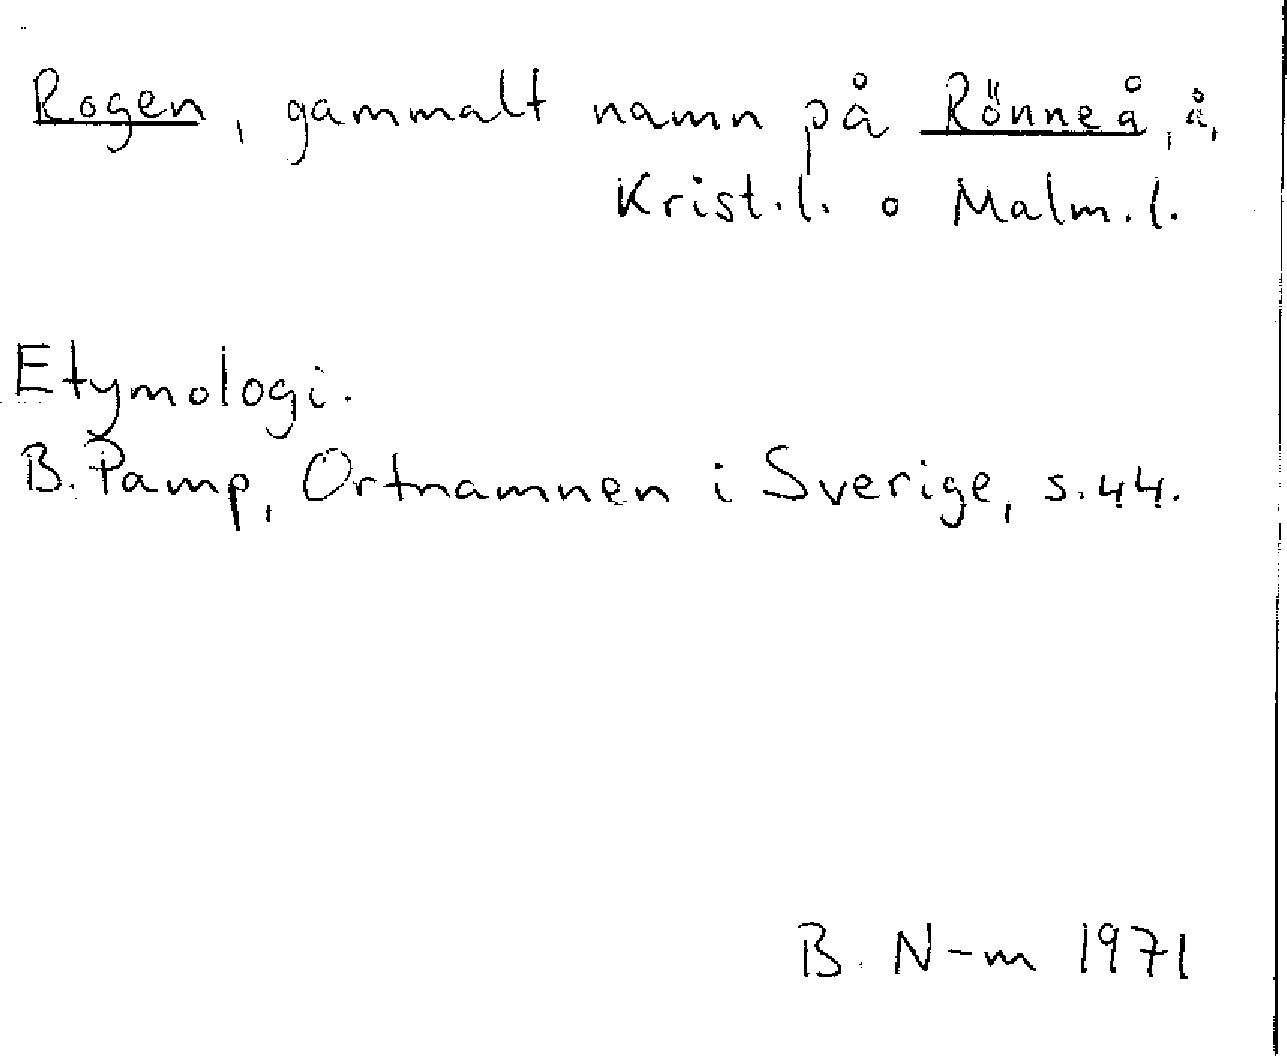 Rogen, gammalt namn på Rönneå, å,
Krist.l. o Malm.l.
Etymologi.
B. Pamp, Ortnamnen i Sverige, s. 44.
B. N-m 1971